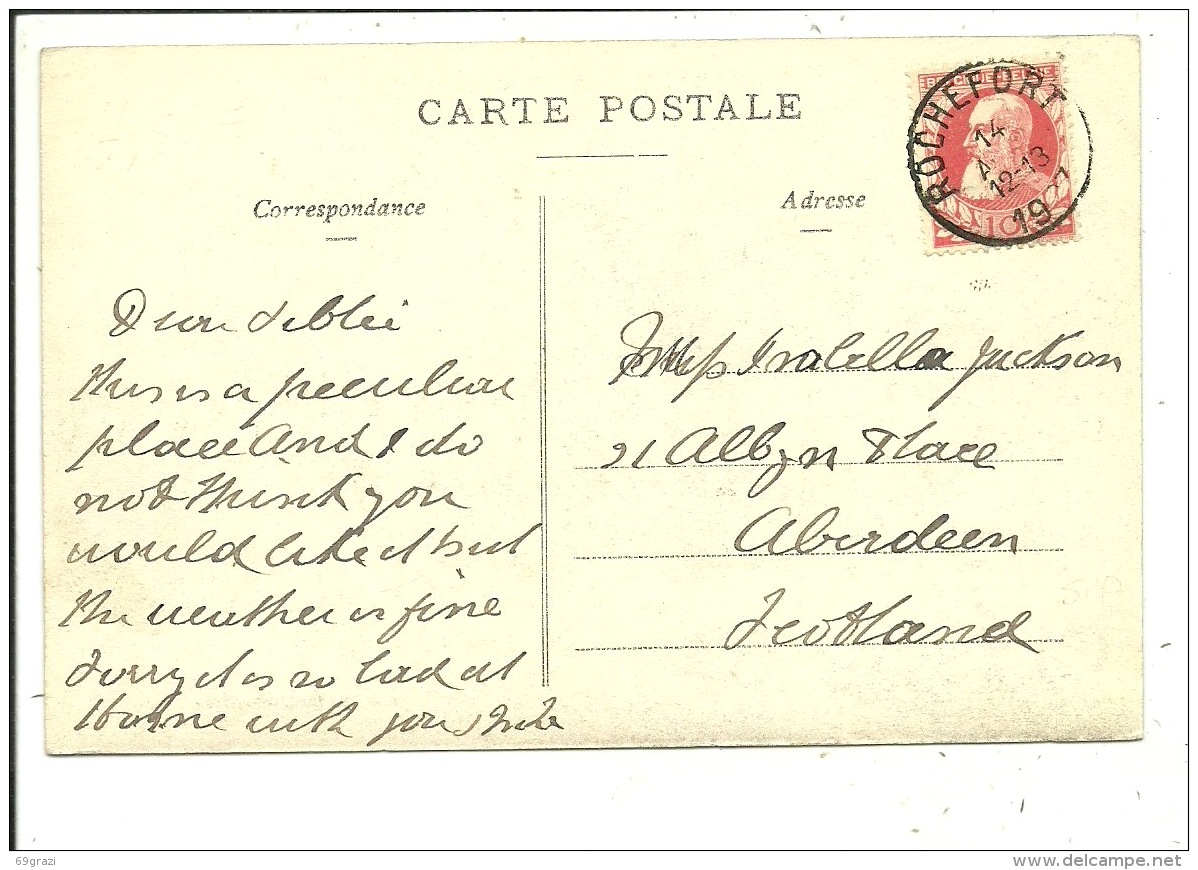 CARTE POSTALE
Correspondance
Adresse
ROCHEFORT
14
12-13
19
10
Dear
this is a peculiar
place and I do
not think you
would like it but
the weather is fine
Sorry it is so bad at
Home with you
Miss Isabella Jackson
21 Albyn Place
Aberdeen
Scotland
69grazi
delcampe.net